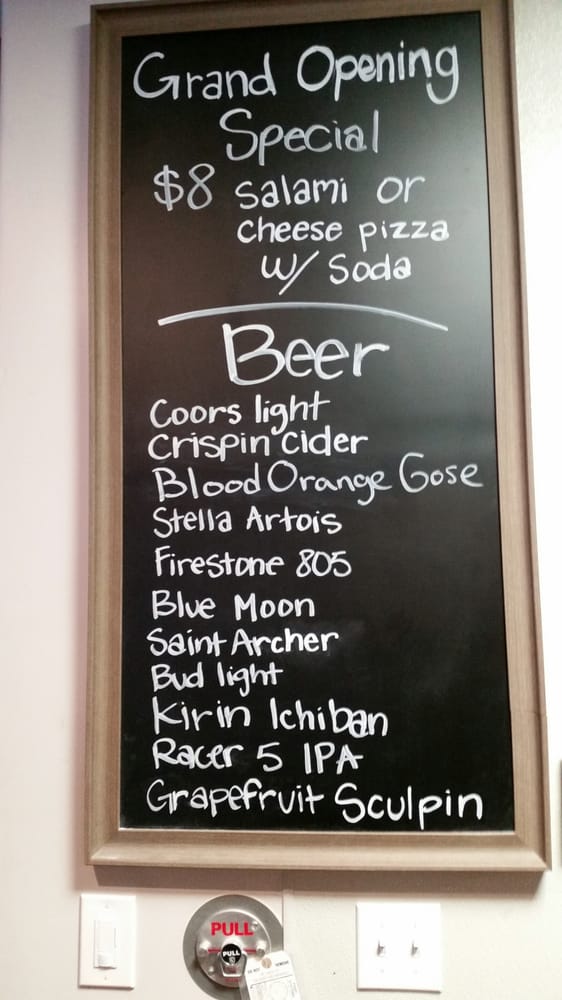 Grand Opening
Special
$8 Salami or
cheese pizza
w/ Soda
Beer
Coors light
Crispin Cider
Blood Orange Gose
Stella Artois
Firestone 805
Blue Moon
Saint Archer
Bud light
Kirin Ichiban
Racer 5 IPA
Grapefruit Sculpin
PULL
PULL